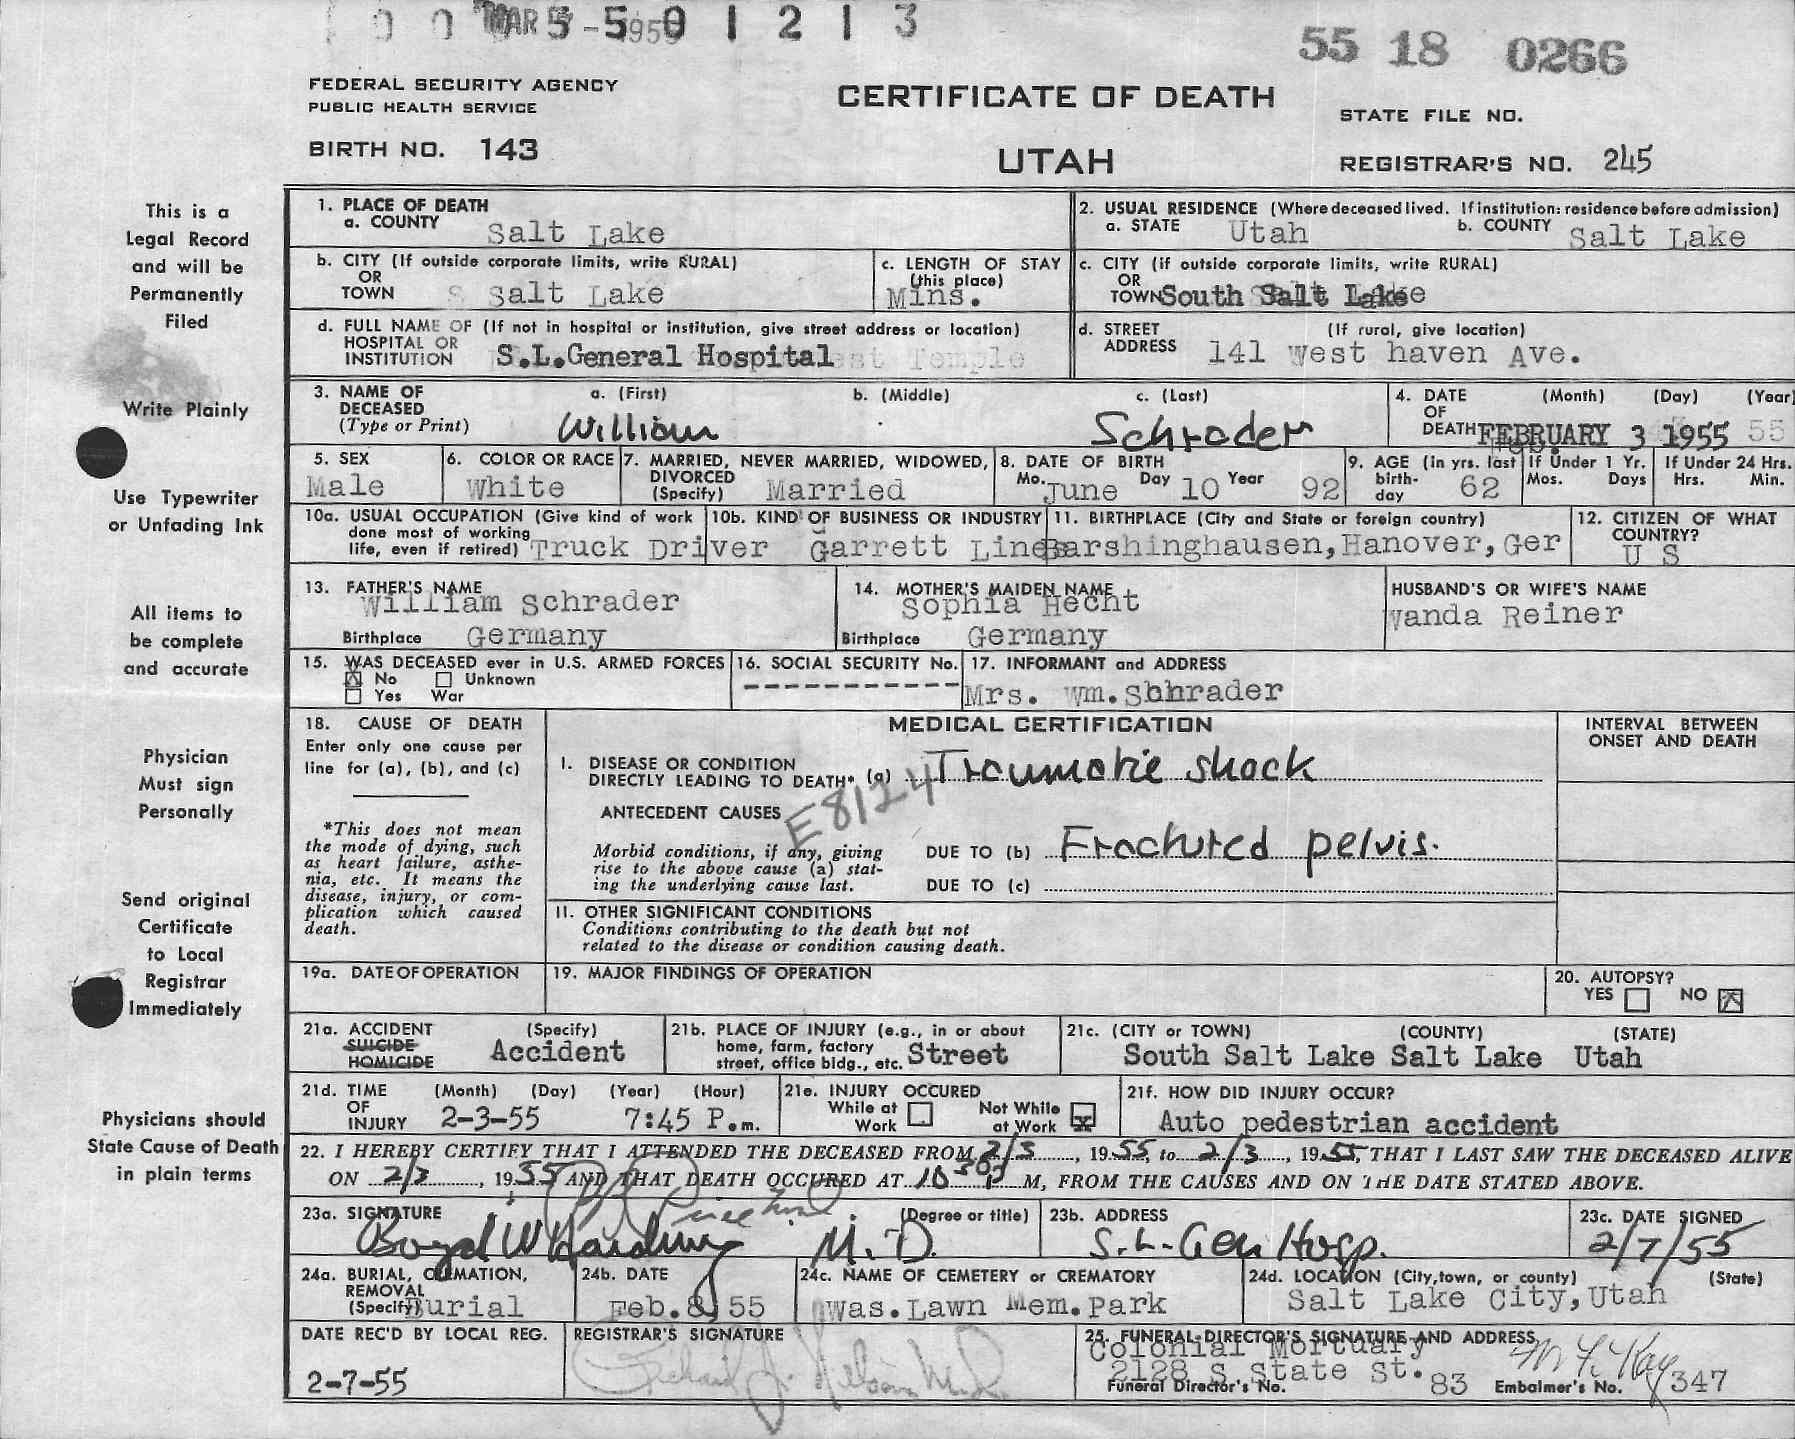 MAR 5 - 1955
5 5 0 1 2 1 3
55 18 0266
FEDERAL SECURITY AGENCY
PUBLIC HEALTH SERVICE
CERTIFICATE OF DEATH
STATE FILE NO.
BIRTH NO. 143
UTAH
REGISTRAR'S NO. 245
This is a
Legal Record
and will be
Permanently
Filed
Write Plainly
Use Typewriter
or Unfading Ink
All items to
be complete
and accurate
Physician
Must sign
Personally
Send original
Certificate
to Local
Registrar
Immediately
Physicians should
State Cause of Death
in plain terms
1. PLACE OF DEATH
a. COUNTY Salt Lake
2. USUAL RESIDENCE (Where deceased lived. If institution: residence before admission)
a. STATE Utah b. COUNTY Salt Lake
b. CITY (If outside corporate limits, write RURAL)
OR
TOWN S Salt Lake
c. LENGTH OF STAY
(this place)
Mins.
c. CITY (if outside corporate limits, write RURAL)
OR
TOWN South Salt Lake
d. FULL NAME OF (If not in hospital or institution, give street address or location)
HOSPITAL OR
INSTITUTION S.L.General Hospital
d. STREET (If rural, give location)
ADDRESS 141 West haven Ave.
3. NAME OF a. (First) b. (Middle) c. (Last)
DECEASED
(Type or Print) William Schrader
4. DATE (Month) (Day) (Year)
OF
DEATH FEBRUARY 3 1955
5. SEX
Male
6. COLOR OR RACE
White
7. MARRIED, NEVER MARRIED, WIDOWED,
DIVORCED
(Specify) Married
8. DATE OF BIRTH
Mo. June Day 10 Year 92
9. AGE (in yrs. last
birth-
day 62
If Under 1 Yr.
Mos. Days
If Under 24 Hrs.
Hrs. Min.
10a. USUAL OCCUPATION (Give kind of work
done most of working
life, even if retired) Truck Driver
10b. KIND OF BUSINESS OR INDUSTRY
Garrett Lines
11. BIRTHPLACE (City and State or foreign country)
Barshinghausen, Hanover, Ger
12. CITIZEN OF WHAT
COUNTRY?
U S
13. FATHER'S NAME
William Schrader
Birthplace Germany
14. MOTHER'S MAIDEN NAME
Sophia Hecht
Birthplace Germany
HUSBAND'S OR WIFE'S NAME
Wanda Reiner
15. WAS DECEASED ever in U.S. ARMED FORCES
No Unknown
Yes War
16. SOCIAL SECURITY No.
------------
17. INFORMANT and ADDRESS
Mrs. Wm. Shhrader
18. CAUSE OF DEATH
Enter only one cause per
line for (a), (b), and (c)
*This does not mean
the mode of dying, such
as heart failure, asthe-
nia, etc. It means the
disease, injury, or com-
plication which caused
death.
MEDICAL CERTIFICATION
I. DISEASE OR CONDITION
DIRECTLY LEADING TO DEATH* (a) Traumatic shock
ANTECEDENT CAUSES
E8124
Morbid conditions, if any, giving
rise to the above cause (a) stat-
ing the underlying cause last.
DUE TO (b) Fractured pelvis.
DUE TO (c)
II. OTHER SIGNIFICANT CONDITIONS
Conditions contributing to the death but not
related to the disease or condition causing death.
INTERVAL BETWEEN
ONSET AND DEATH
19a. DATE OF OPERATION
19. MAJOR FINDINGS OF OPERATION
20. AUTOPSY?
YES NO
21a. ACCIDENT (Specify)
SUICIDE
HOMICIDE Accident
21b. PLACE OF INJURY (e.g., in or about
home, farm, factory
street, office bldg., etc. Street
21c. (CITY or TOWN) (COUNTY) (STATE)
South Salt Lake Salt Lake Utah
21d. TIME (Month) (Day) (Year) (Hour)
OF
INJURY 2-3-55 7:45 P.m.
21e. INJURY OCCURED
While at Work
Not While at Work
21f. HOW DID INJURY OCCUR?
Auto pedestrian accident
22. I HEREBY CERTIFY THAT I ATTENDED THE DECEASED FROM 2/3, 1955, to 2/3, 1955, THAT I LAST SAW THE DECEASED ALIVE
ON 2/3, 1955 AND THAT DEATH OCCURED AT 10 50 P M, FROM THE CAUSES AND ON THE DATE STATED ABOVE.
23a. SIGNATURE (Degree or title)
Boyd W Harding M.D.
23b. ADDRESS
S.L. Gen Hosp.
23c. DATE SIGNED
2/7/55
24a. BURIAL, CREMATION,
REMOVAL
(Specify) Burial
24b. DATE
Feb. 8, 55
24c. NAME OF CEMETERY or CREMATORY
Was. Lawn Mem. Park
24d. LOCATION (City, town, or county) (State)
Salt Lake City, Utah
DATE REC'D BY LOCAL REG.
2-7-55
REGISTRAR'S SIGNATURE
25. FUNERAL DIRECTOR'S SIGNATURE AND ADDRESS
Colonial Mortuary
2128 S. State St.
Funeral Director's No. 83 Embalmer's No. 347